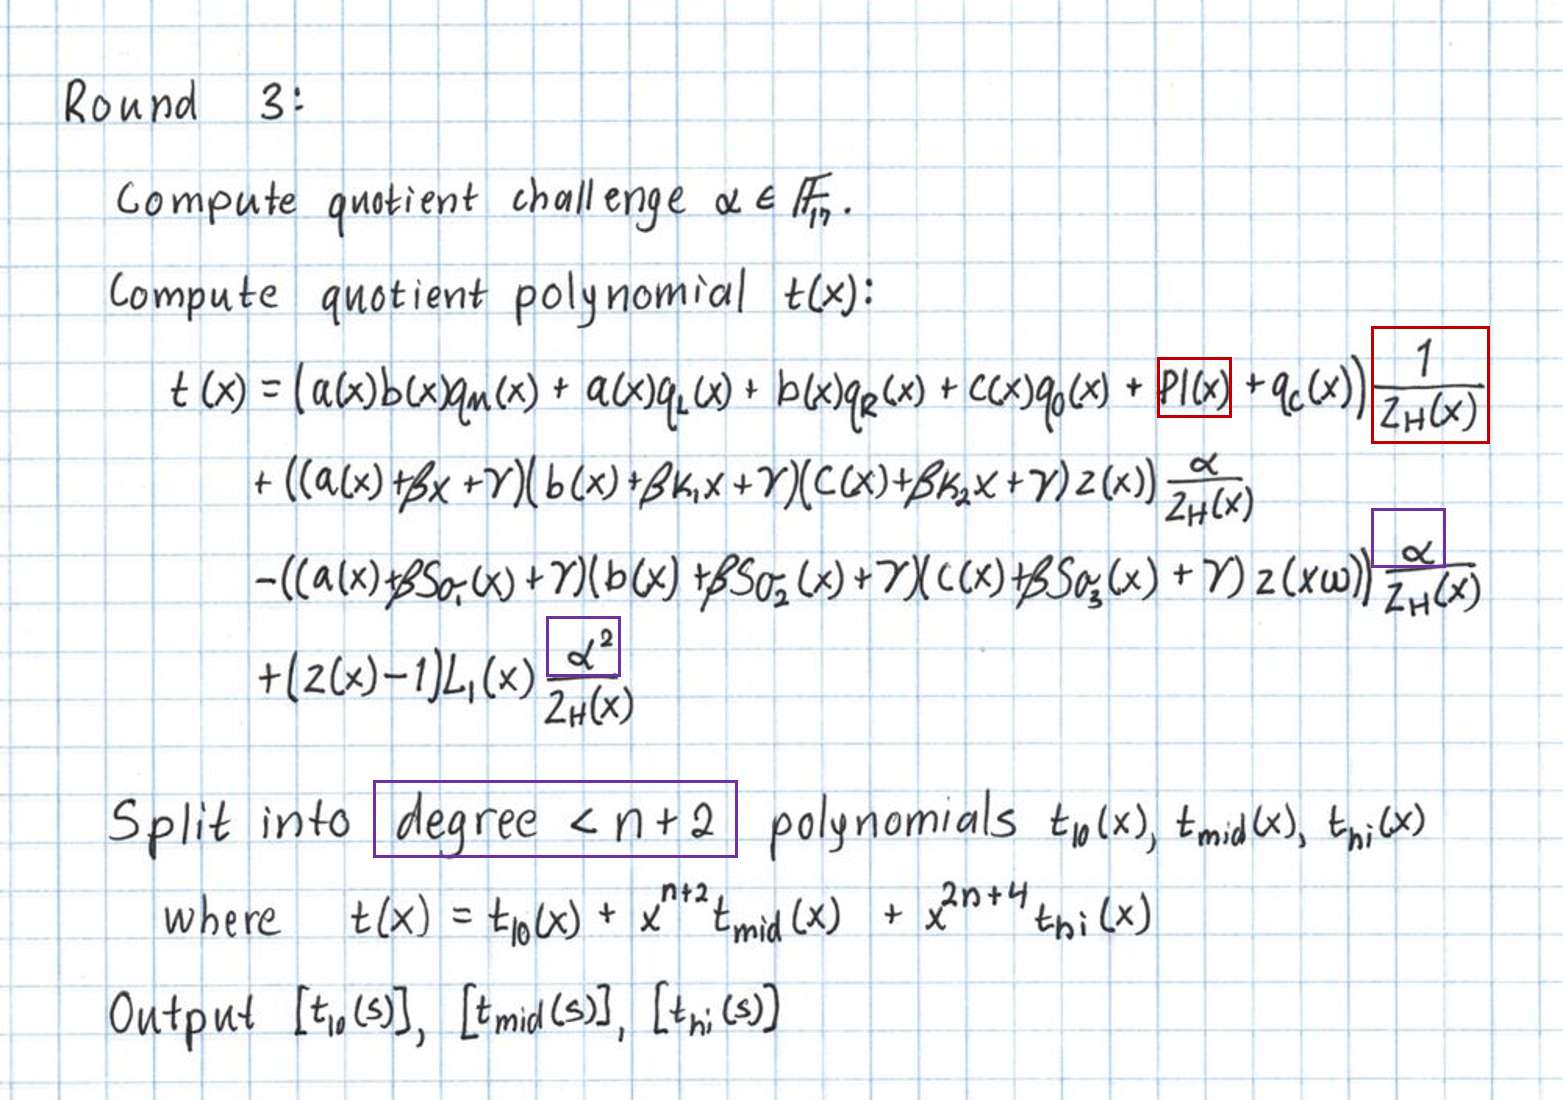 Round 3:
Compute quotient challenge α ∈ 𝔽₁₇.
Compute quotient polynomial t(x):
t(x) = (a(x)b(x)q_M(x) + a(x)q_L(x) + b(x)q_R(x) + c(x)q_O(x) + PI(x) + q_C(x)) 1/Z_H(x)
+ ((a(x)+βx+γ)(b(x)+βk₁x+γ)(c(x)+βk₂x+γ)z(x)) α/Z_H(x)
-((a(x)+βSσ₁(x)+γ)(b(x)+βSσ₂(x)+γ)(c(x)+βSσ₃(x)+γ)z(xω)) α/Z_H(x)
+(z(x)-1)L₁(x) α²/Z_H(x)
Split into degree < n+2 polynomials t_lo(x), t_mid(x), t_hi(x)
where t(x) = t_lo(x) + x^{n+2} t_mid(x) + x^{2n+4} t_hi(x)
Output [t_lo(s)], [t_mid(s)], [t_hi(s)]